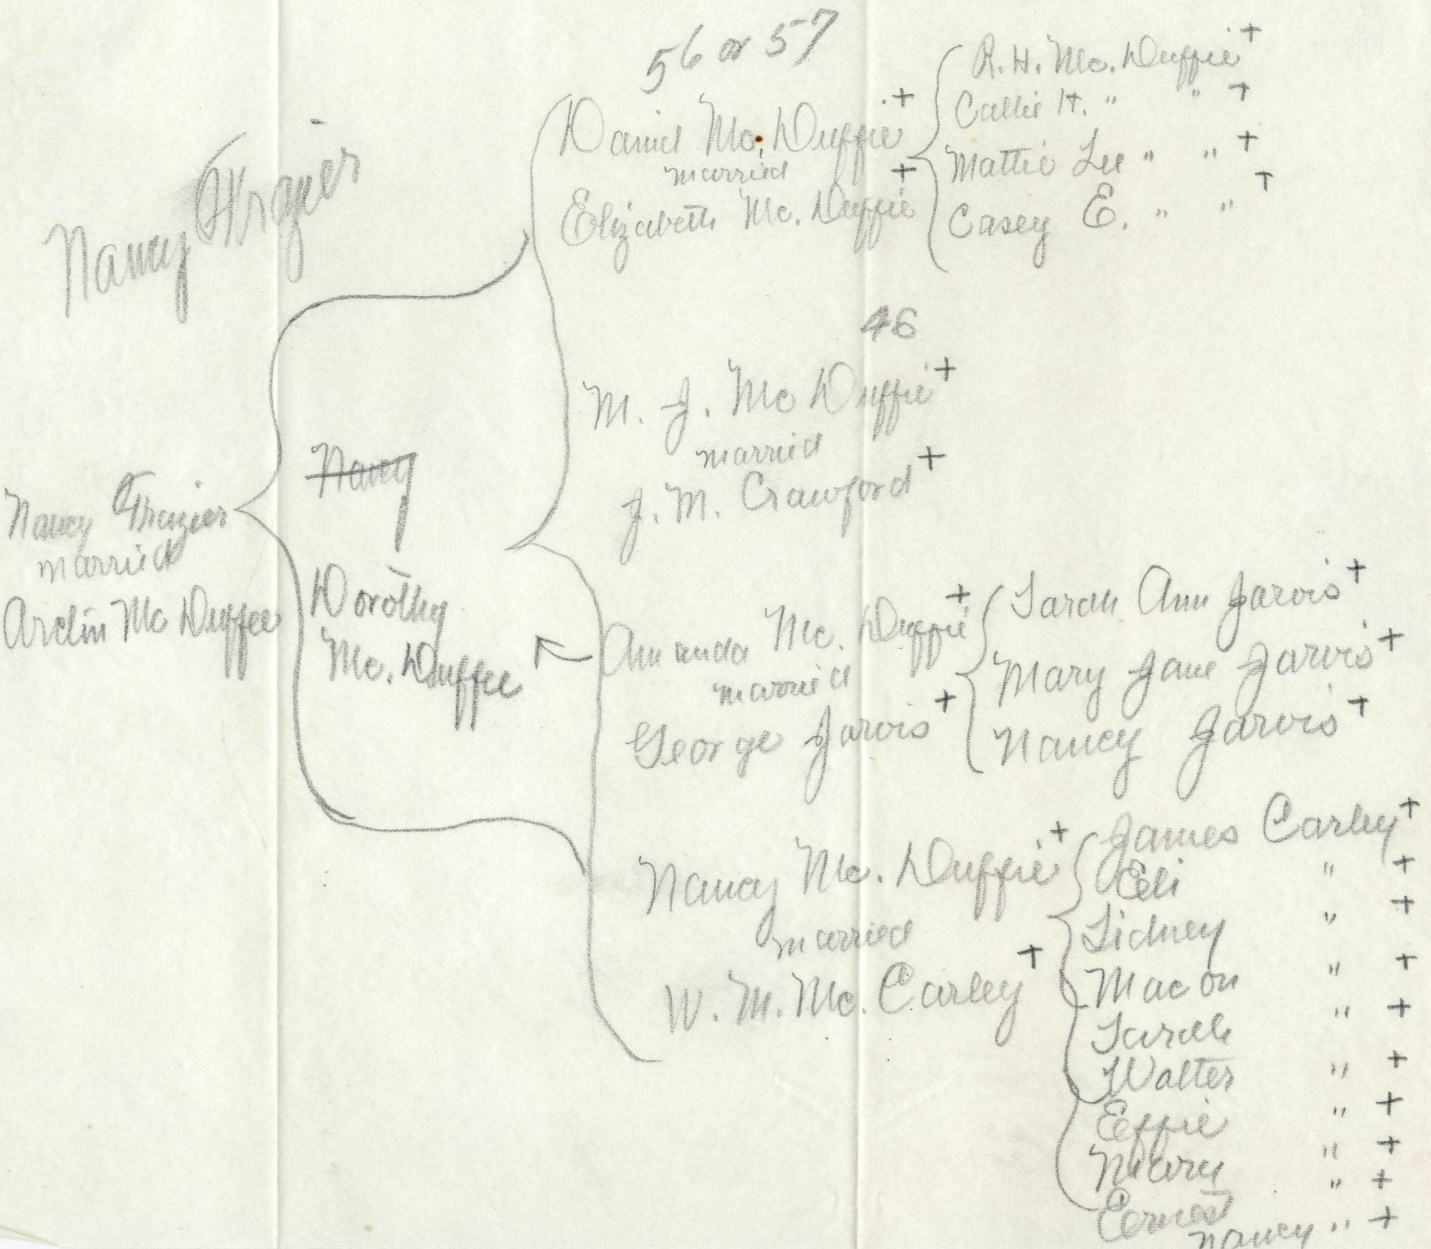 Nancy Frazier
Nancy Frazier
married
Arclin Mc Duffee
Nancy
Dorothy
Mc. Duffee
56 or 57
Daniel Mc. Duffie +
married
Elizabeth Mc. Duffie +
R. H. Mc. Duffie +
Callie H. " " +
Mattie Lee " " +
Casey E. " " +
46
M. J. Mc Duffie +
married
J. M. Crawford +
Amanda Mc. Duffie +
married
George Jarvis +
Sarah Ann Jarvis +
Mary Jane Jarvis +
Nancy Jarvis +
Nancy Mc. Duffie +
married
W. M. Mc. Carley +
James Carley +
Eli " +
Sidney " +
Macon " +
Sarah " +
Walter " +
Effie " +
" +
Ernest " +
Nancy " +